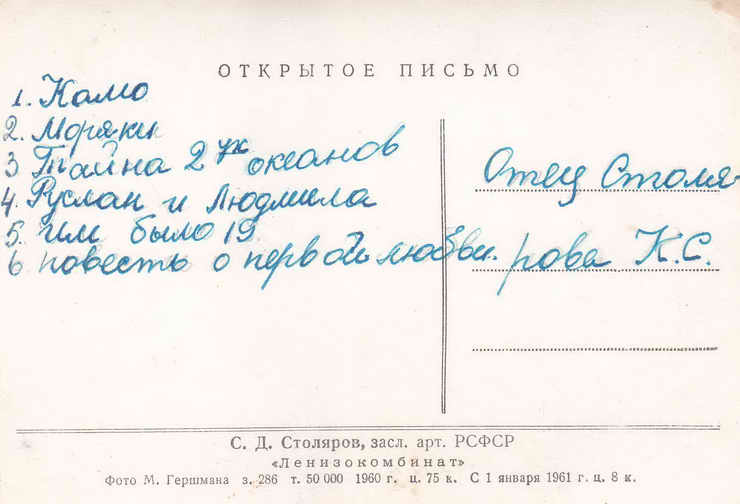 ОТКРЫТОЕ ПИСЬМО
1. Камо
2. Моряки
3 Тайна 2ух океанов
4. Руслан и Людмила
5. им было 19
6 повесть о первой любви.
Отец Столя-
рова К.С.
С. Д. Столяров, засл. арт. РСФСР
«Ленизокомбинат»
Фото М. Гершмана з. 286 т. 50 000 1960 г. ц. 75 к. С 1 января 1961 г. ц. 8 к.